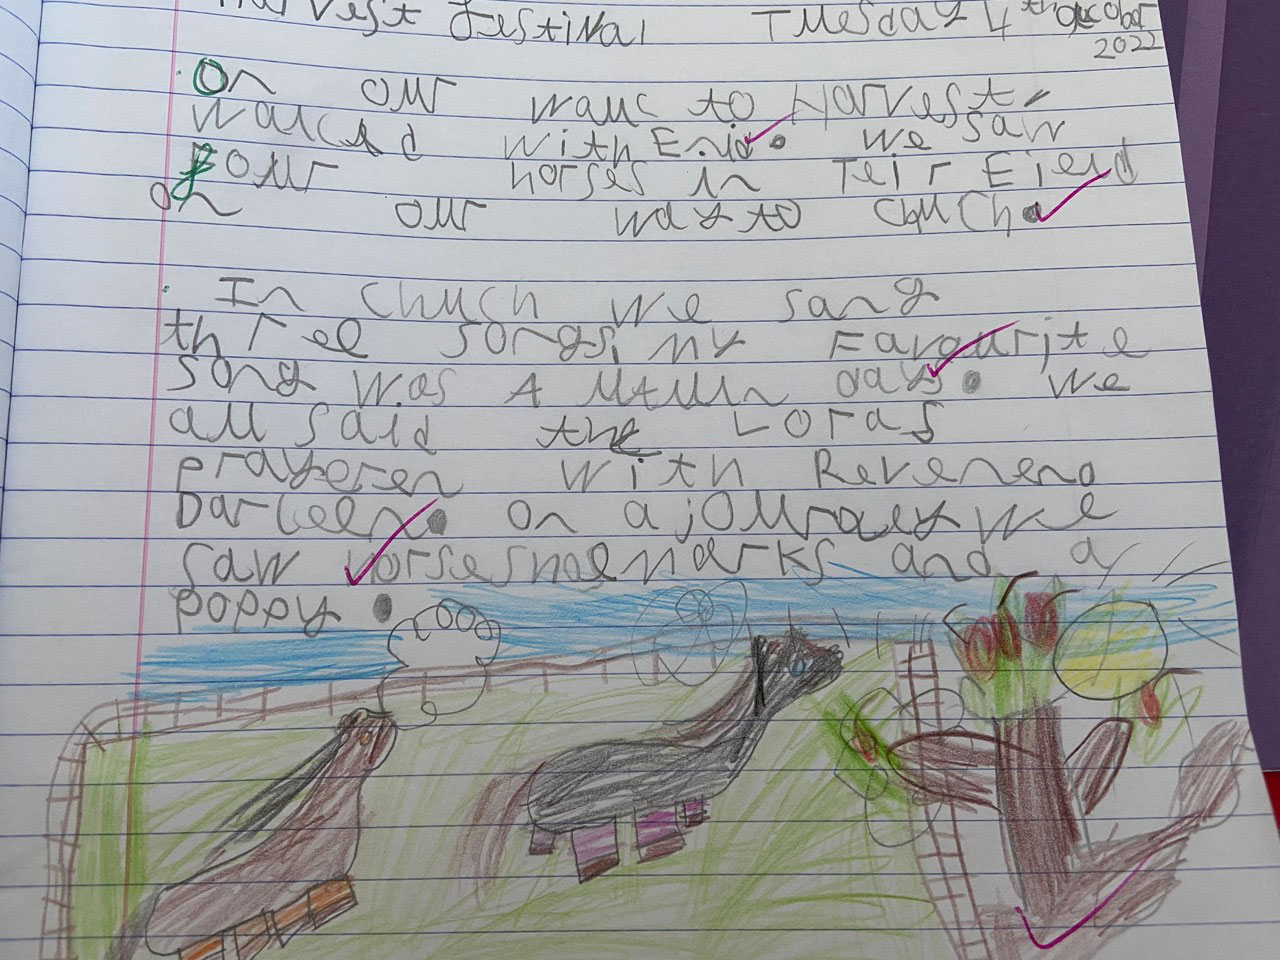 Harvest festival Tuesday 4th October
2022
On our wauc to Harvest
waucd with Enid. We saw
Four horses in Teir Field
On our way to Chuch.
In Chuch we sang
three songs, my Favourite
song was Autumn days. We
all said the Lords
prayeren with Reverend
Darleen. On a journey we
saw horseshoemarks and a
poppy.